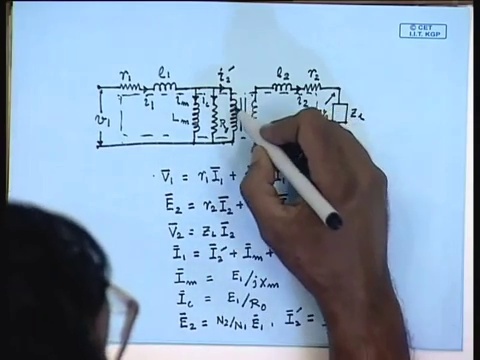 © CET
I.I.T. KGP
r₁ l₁ i₂′ l₂ r₂
v₁ i₁ iₘ Lₘ R₀ i₂ Z_L
V̄₁ = r₁Ī₁ +
Ē₂ = r₂Ī₂ +
V̄₂ = Z_L Ī₂
Ī₁ = Ī₂′ + Īₘ +
Īₘ = E₁/jxₘ
Ī_c = E₁/R₀
Ē₂ = N₂/N₁ Ē₁ . Ī₂′ =